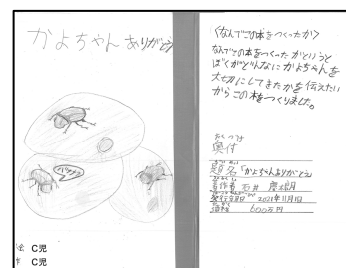 かよちゃんありがとう
絵 C児
C児
〈なんでこの本をつくったか〉
なんでこの本をつくったかというと
ぼくがどんなにかよちゃんを
大切にしてきたかを伝えたい
からこの本をつくりました。
おくつけ
奥付
題名「かよちゃんありがとう」
著作者 石井
発行年月日 2021年11月1日
600万円